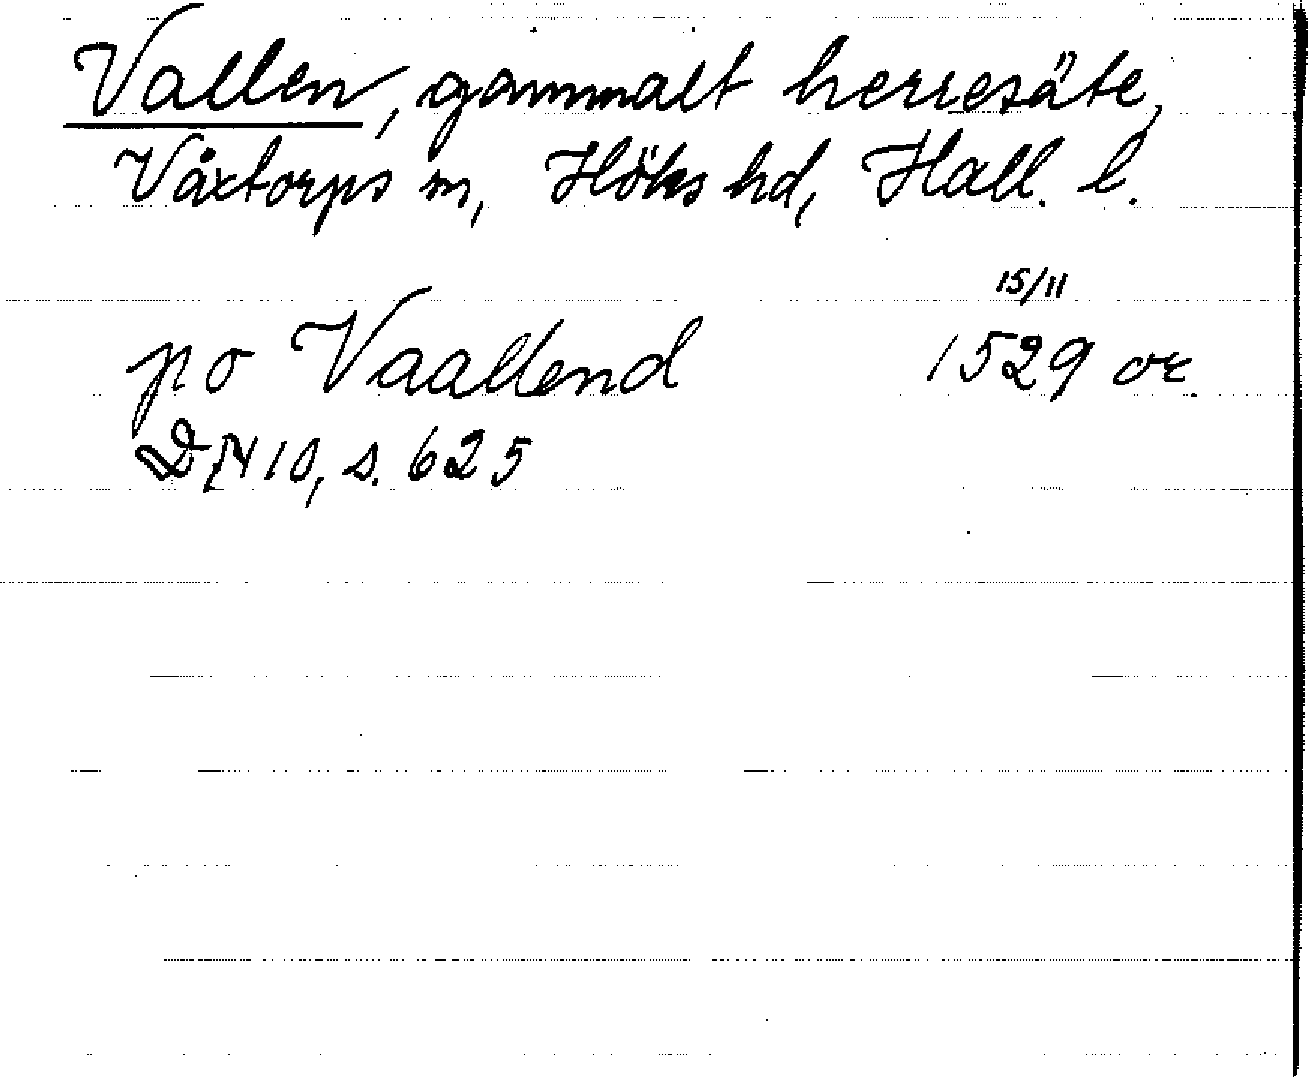 Vallen, gammalt herresäte,
Våxtorps sn, Höks hd, Hall. l.
15/11
po Vaallend 1529 or.
DN 10, s. 625